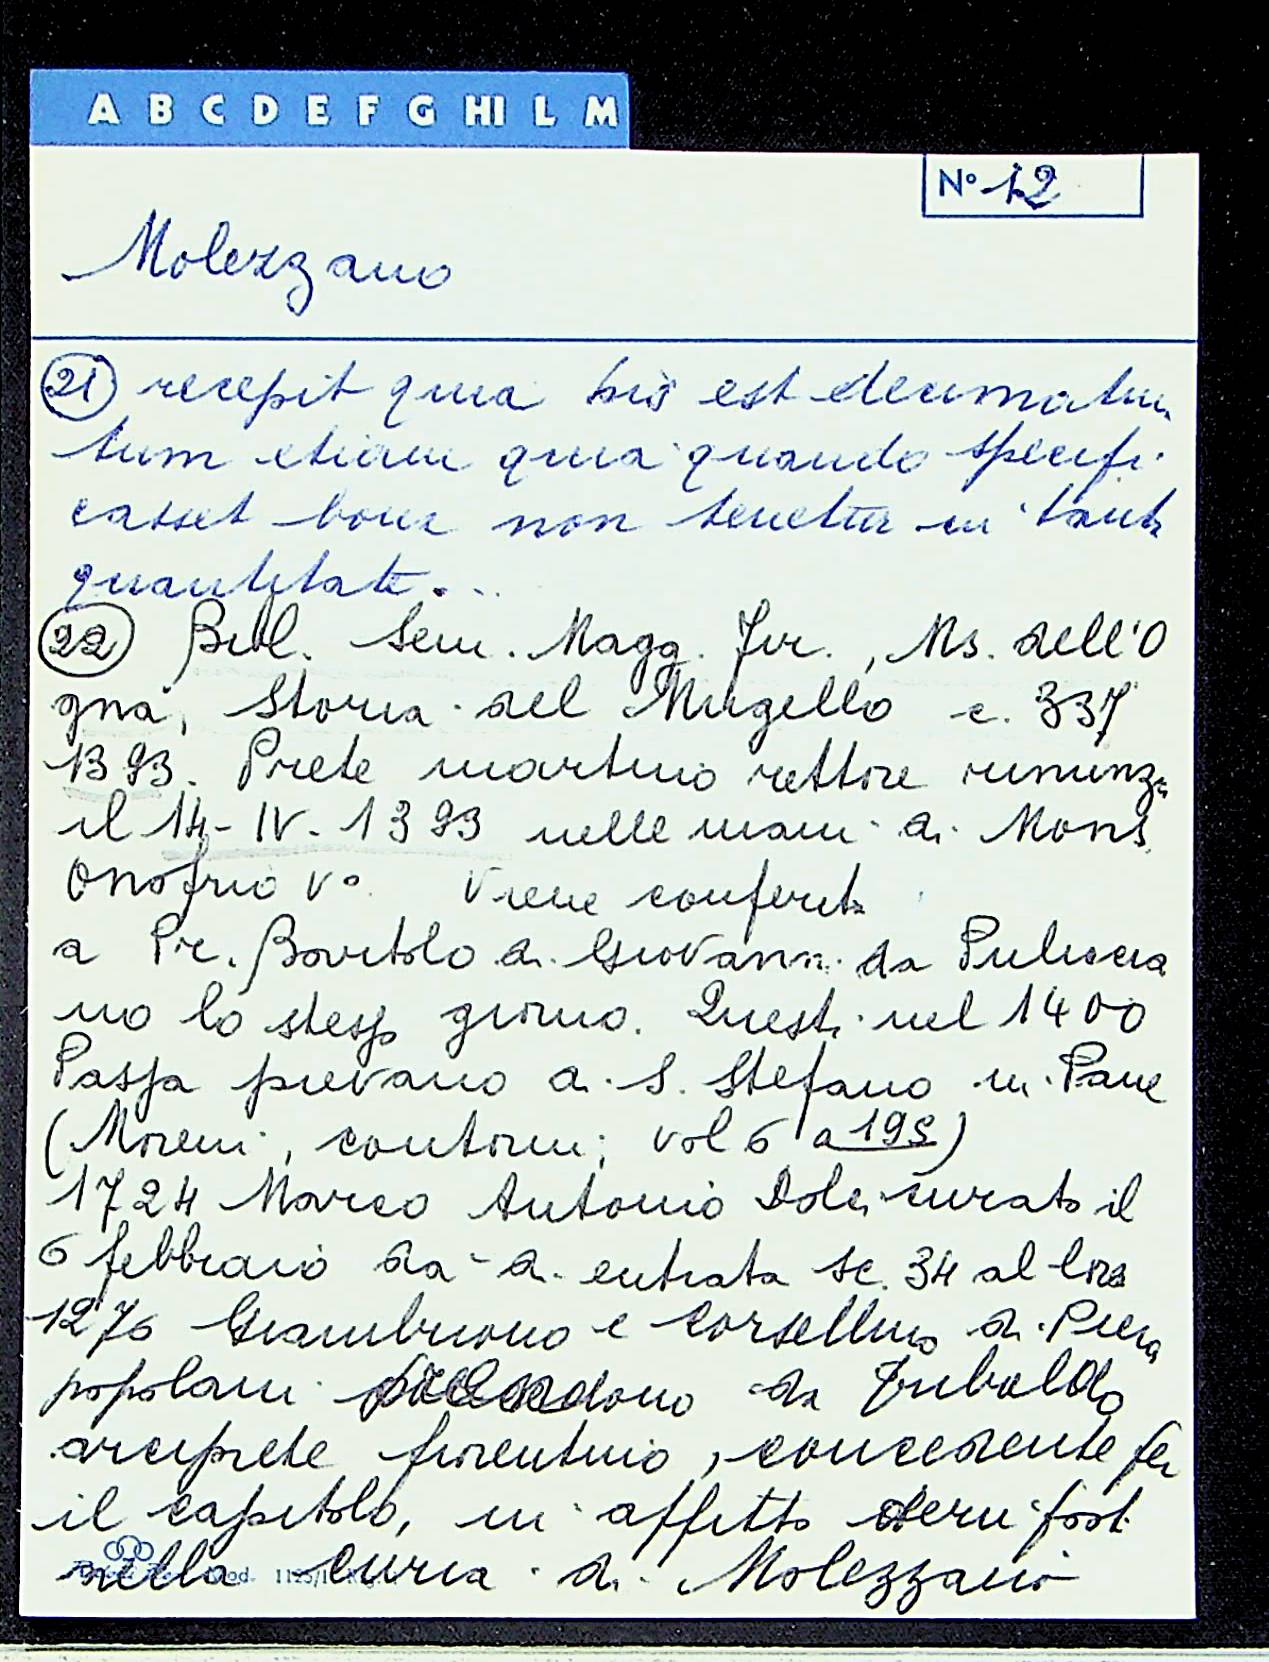 A B C D E F G HI L M
N° 12
Molezzano
(21) recepit quia bis est decimatum
tum etiam quia quando specifi
casset bona non tenetur in tanta
quantitate...
(22) Bibl. Sem. Magg. Fir., Ms. dell'O
gna, Storia del Mugello c. 337
1393. Prete martino rettore rinunzia
il 14-IV-1393 nelle mani di Mons.
Onofrio V° Viene conferita
a Pr. Bartolo di Giovanni da Pulicia
no lo stesso giorno. Questi nel 1400
Passa pievano a S. Stefano in Pane
(Moreni, contorni, vol 6 a 195)
1724 Marco Antonio Dolci curato il
6 febbraio da di entrata sc. 34 al lora
1276 Giambuono e Corsellino di Piera
popolani prendono da Tribaldo
arciprete fiorentino, concedente per
il capitolo, in affitto beni posti
nella curia di Molezzano
Mod.